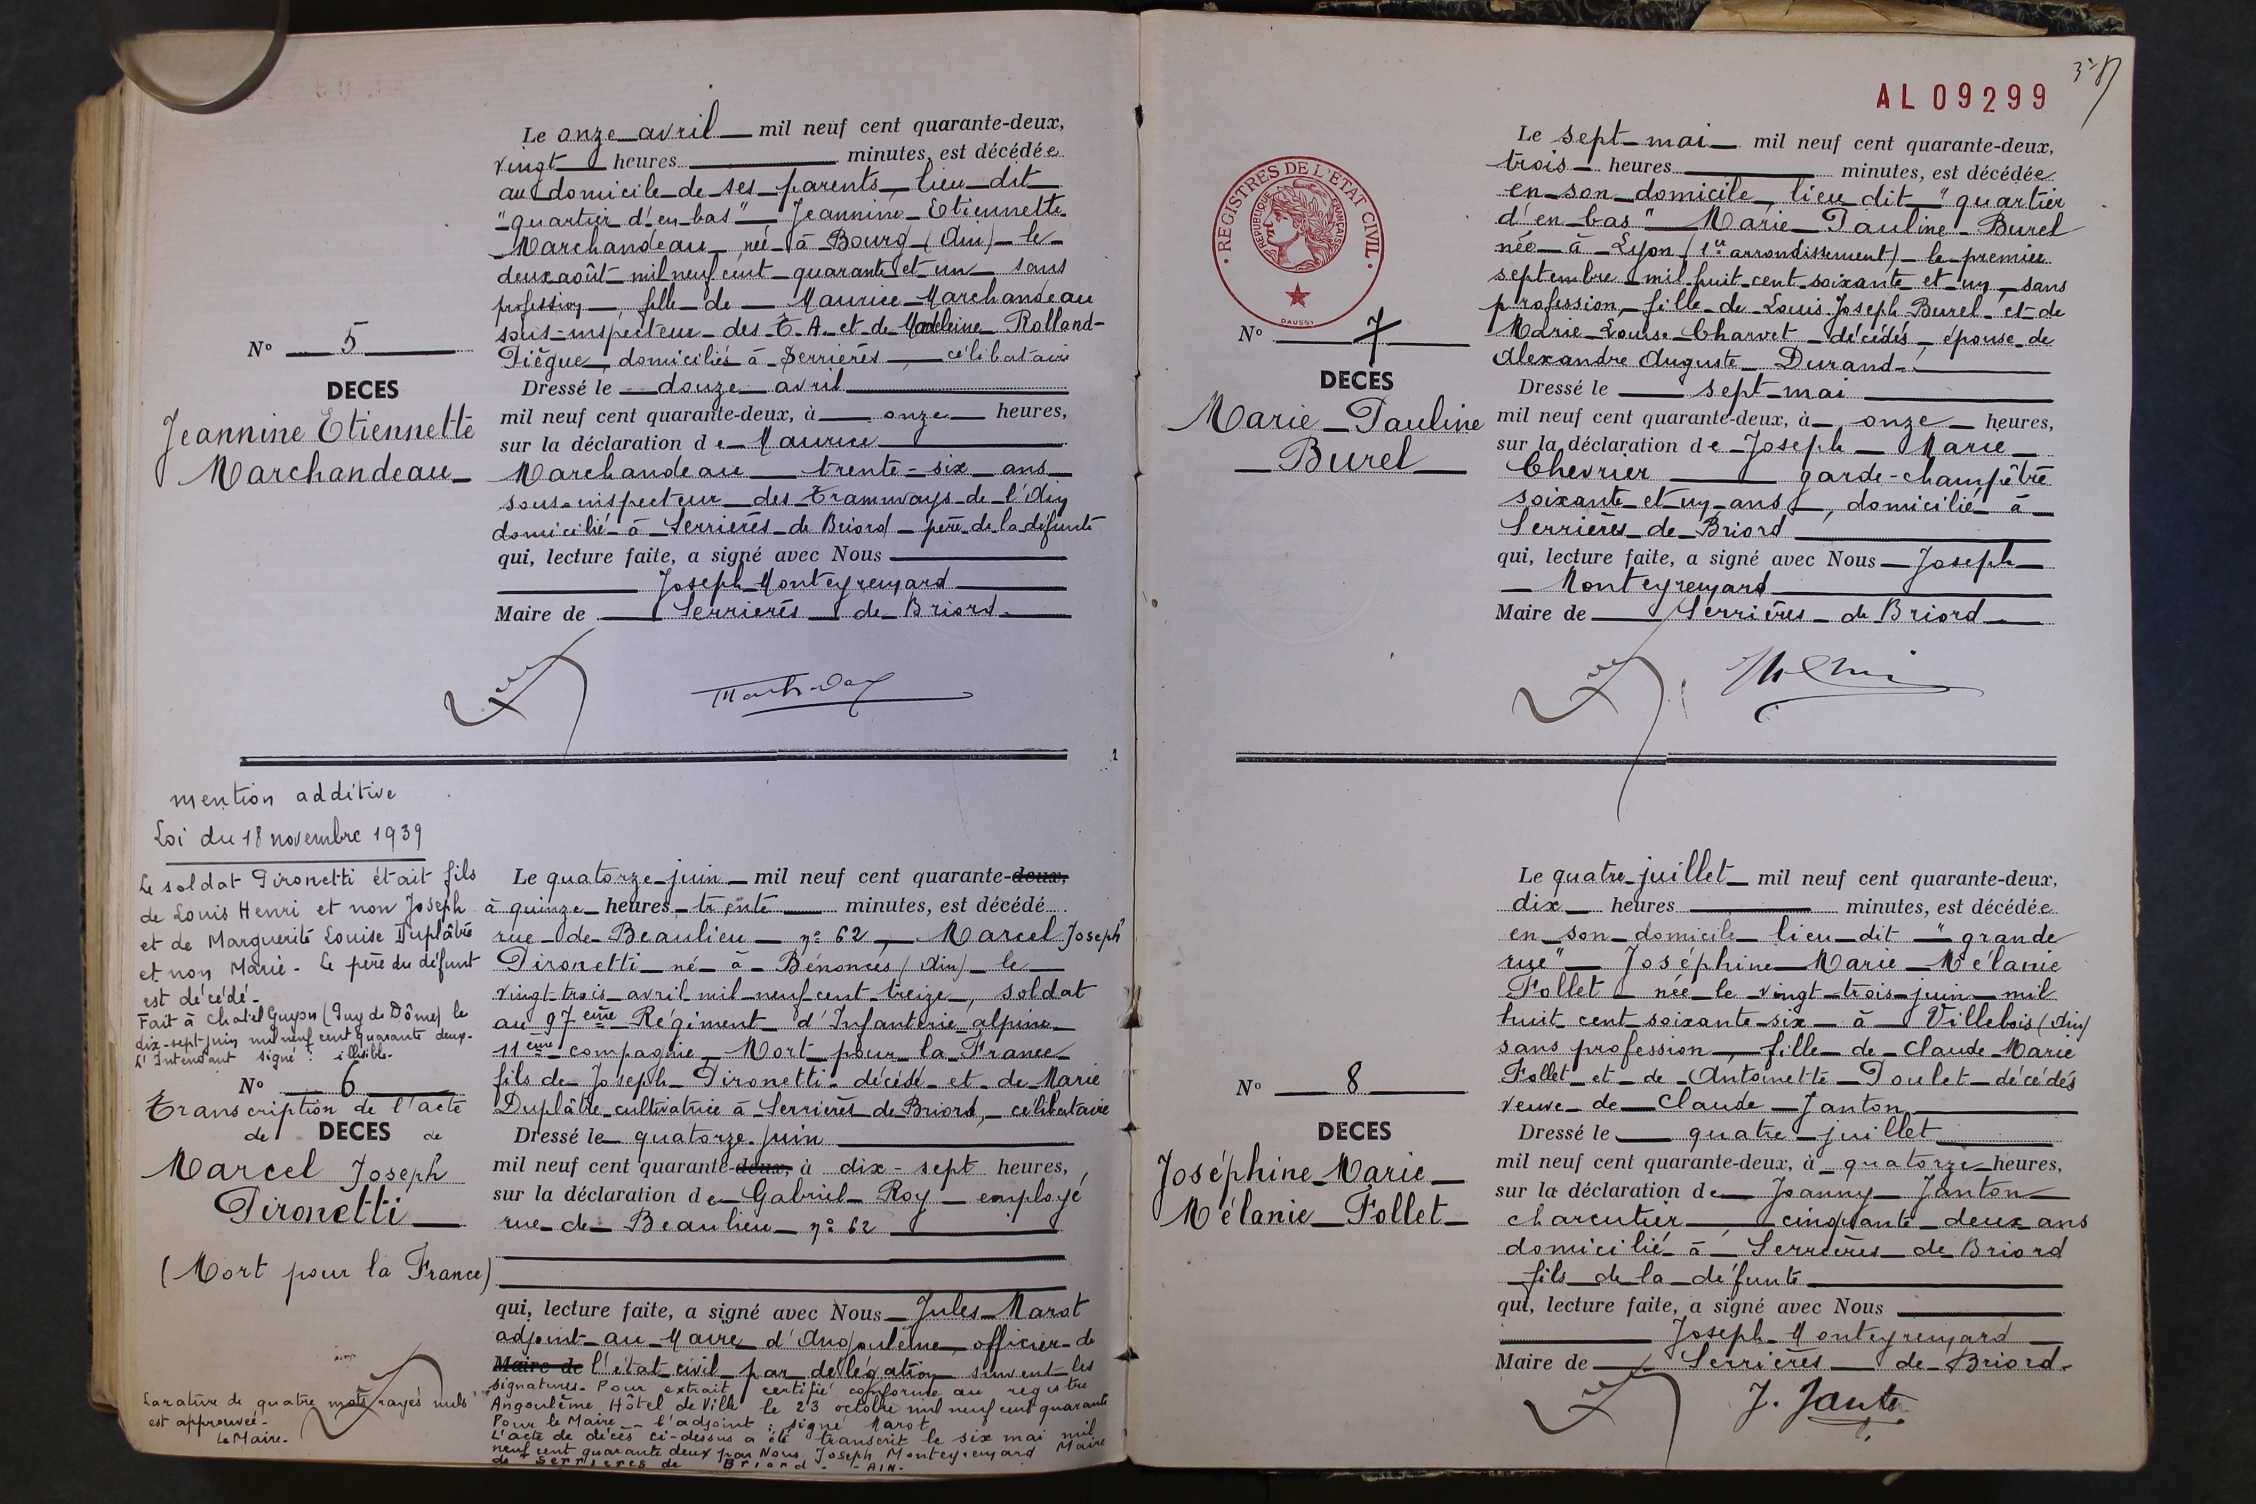 Le onze avril mil neuf cent quarante-deux,
vingt heures minutes, est décédée
au domicile de ses parents, lieu dit
"quartier d'en bas" Jeannine Etiennette
Marchandeau, née à Bourg (Ain) le
deux août mil neuf cent quarante et un sans
profession, fille de Maurice Marchandeau
sous-inspecteur des T. A. et de Madeleine Rolland-
Piègue, domiciliés à Serrières, célibataire
N° 5
DECES
Jeannine Etiennette
Marchandeau
Dressé le douze avril
mil neuf cent quarante-deux, à onze heures,
sur la déclaration de Maurice
Marchandeau trente-six ans
sous-inspecteur des Tramways de l'Ain
domicilié à Serrières de Briord père de la défunte
qui, lecture faite, a signé avec Nous
Joseph Monteyremard
Maire de Serrières de Briord
mention additive
Loi du 18 novembre 1939
Le soldat Pironetti était fils
de Louis Henri et non Joseph
et de Marguerite Louise Duplâtre
et non Marie. Le père du défunt
est décédé.
Fait à Chatel Guyon (Puy de Dôme) le
dix-sept juin mil neuf cent quarante deux.
L'Intendant signé : illisible.
N° 6
Transcription de l'acte
de DECES de
Marcel Joseph
Pironetti
(Mort pour la France)
La rature de quatre mots rayés nuls
est approuvée.
Le Maire.
Le quatorze juin mil neuf cent quarante-deux,
à quinze heures trente minutes, est décédé
rue de Beaulieu n° 62, Marcel Joseph
Pironetti né à Bénonces (Ain) le
vingt-trois avril mil neuf cent treize, soldat
au 97eme Régiment d'Infanterie alpine
11eme compagnie Mort pour la France
fils de Joseph Pironetti décédé et de Marie
Duplâtre cultivatrice à Serrières de Briord, célibataire
Dressé le quatorze juin
mil neuf cent quarante-deux, à dix-sept heures,
sur la déclaration de Gabriel Roy employé
rue de Beaulieu n° 62
qui, lecture faite, a signé avec Nous Jules Marot
adjoint au Maire d'Angoulême, officier de
Maire de l'état civil par délégation suivent les
signatures. Pour extrait certifié conforme au registre
Angoulême Hôtel de Ville le 23 octobre mil neuf cent quarante
Pour le Maire l'adjoint : signé Marot
L'acte de décès ci-dessus a été transcrit le six mai mil
neuf cent quarante deux par Nous Joseph Monteyremard Maire
de Serrières de Briord. -AIN-
AL 09299
REGISTRES DE L'ETAT CIVIL
REPUBLIQUE FRANÇAISE
DAUSSY
Le sept mai mil neuf cent quarante-deux,
trois heures minutes, est décédée
en son domicile, lieu dit "quartier
d'en bas" Marie Pauline Burel
née à Lyon (1er arrondissement) le premier
septembre mil huit cent soixante et un, sans
profession, fille de Louis Joseph Burel et de
Marie Louise Charvet décédés, épouse de
Alexandre Auguste Durand
N° 7
DECES
Marie Pauline
Burel
Dressé le sept mai
mil neuf cent quarante-deux, à onze heures,
sur la déclaration de Joseph Marie
Chevrier garde-champêtre
soixante et un ans, domicilié à
Serrières de Briord
qui, lecture faite, a signé avec Nous Joseph
Monteyremard
Maire de Serrières de Briord
Le quatre juillet mil neuf cent quarante-deux,
dix heures minutes, est décédée
en son domicile lieu dit "grande
rue" Joséphine Marie Mélanie
Follet née le vingt-trois juin mil
huit cent soixante-six à Villebois (Ain)
sans profession, fille de Claude Marie
Follet et de Antoinette Poulet décédés
veuve de Claude Janton
N° 8
DECES
Joséphine Marie
Mélanie Follet
Dressé le quatre juillet
mil neuf cent quarante-deux, à quatorze heures,
sur la déclaration de Joanny Janton
charcutier, cinquante-deux ans
domicilié à Serrières de Briord
fils de la défunte
qui, lecture faite, a signé avec Nous
Joseph Monteyremard
Maire de Serrières de Briord
J. Janton